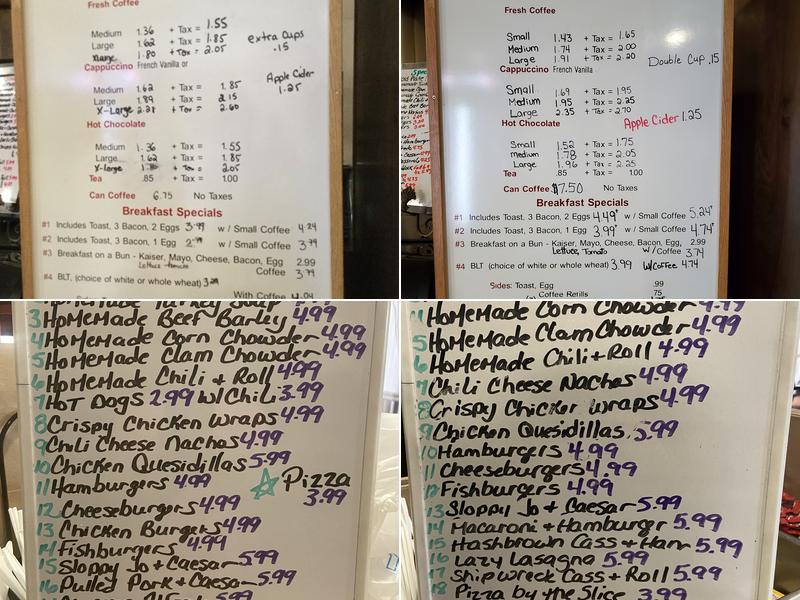 Fresh Coffee
Medium 1.36 + Tax = 1.55
Large 1.62 + Tax = 1.85
XLarge 1.80 + Tax = 2.05
extra cups
.15
Cappuccino French Vanilla or
Apple Cider
1.25
Medium 1.62 + Tax = 1.85
Large 1.89 + Tax = 2.15
X-Large 2.28 + Tax = 2.60
Hot Chocolate
Medium 1.36 + Tax = 1.55
Large 1.62 + Tax = 1.85
X-large + Tax = 2.05
Tea .85 + Tax = 1.00
Can Coffee 6.75 No Taxes
Breakfast Specials
#1 Includes Toast, 3 Bacon, 2 Eggs 3.49 w/ Small Coffee 4.24
#2 Includes Toast, 3 Bacon, 1 Egg 2.99 w/ Small Coffee 3.74
#3 Breakfast on a Bun - Kaiser, Mayo, Cheese, Bacon, Egg, 2.99
Lettuce tomato Coffee 3.74
#4 BLT, (choice of white or whole wheat) 3.29
With Coffee 4.04
Fresh Coffee
Small 1.43 + Tax = 1.65
Medium 1.74 + Tax = 2.00
Large 1.91 + Tax = 2.20
Double Cup .15
Cappuccino French Vanilla
Small 1.69 + Tax = 1.95
Medium 1.95 + Tax = 2.25
Large 2.35 + Tax = 2.70
Apple Cider 1.25
Hot Chocolate
Small 1.52 + Tax = 1.75
Medium 1.78 + Tax = 2.05
Large 1.96 + Tax = 2.25
Tea .85 + Tax = 1.00
Can Coffee $7.50 No Taxes
Breakfast Specials
#1 Includes Toast, 3 Bacon, 2 Eggs 4.49 w/ Small Coffee 5.24
#2 Includes Toast, 3 Bacon, 1 Egg 3.99 w/ Small Coffee 4.74
#3 Breakfast on a Bun - Kaiser, Mayo, Cheese, Bacon, Egg, 2.99
Lettuce, Tomato W/Coffee 3.74
#4 BLT (choice of white or whole wheat) 3.99 W/Coffee 4.74
Sides: Toast, Egg .99
Coffee Refills .75
Homemade Turkey Soup 4.99
3 HoMeMade Beef Barley 4.99
4 HoMeMade Corn Chowder 4.99
5 HoMeMade Clam Chowder 4.99
6 HoMeMade Chili + Roll 4.99
7 HoT Dogs 2.99 W/ChiLi 3.99
8 Crispy Chicken Wraps 4.99
9 Chili Cheese Nachos 4.99
10 Chicken Quesidillas 5.99
11 Hamburgers 4.99
Pizza
3.99
12 Cheeseburgers 4.99
13 Chicken Burgers 4.99
14 Fishburgers 4.99
15 Sloppy Jo + Caesar 5.99
16 Pulled Pork + Caesa 5.99
4 HoMeMade Corn Chowder 4.99
5 HoMeMade Clam Chowder 4.99
6 HoMeMade Chili + Roll 4.99
7 Chili Cheese Nachos 4.99
8 Crispy Chicken Wraps 4.99
9 Chicken Quesidillas 5.99
10 Hamburgers 4.99
11 Cheeseburgers 4.99
12 Fishburgers 4.99
13 Sloppy Jo + Caesar 5.99
14 Macaroni + Hamburger 5.99
15 Hashbrown Cass + Ham 5.99
16 Lazy Lasagna 5.99
17 Shipwreck Cass + Roll 5.99
18 Pizza by the Slice 3.99